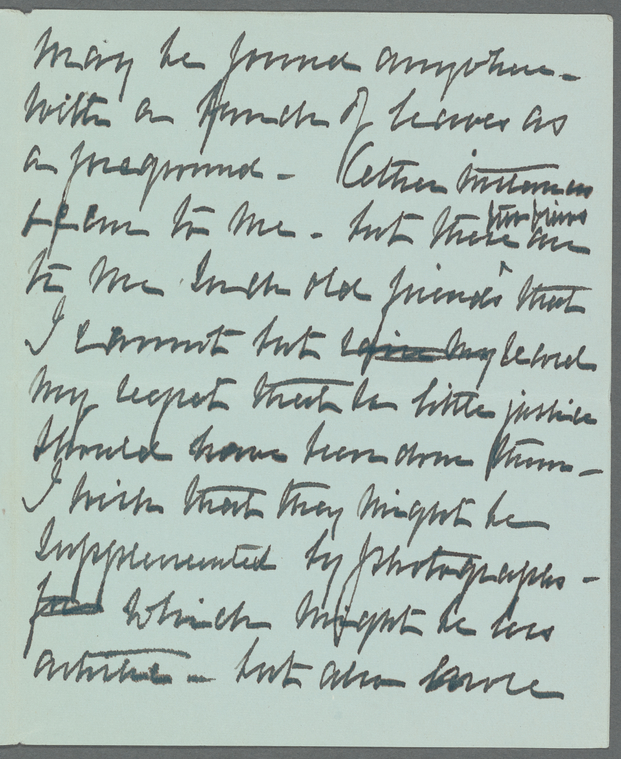 may be found anywhere –
with a bunch of leaves as
a foreground – Other instances
occur to me – but these two views are
to me such old friends that
I cannot but give my record
my regret that so little justice
should have been done them –
I wish that they might be
supplemented by photographs –
for which might be less
artistic – but also more